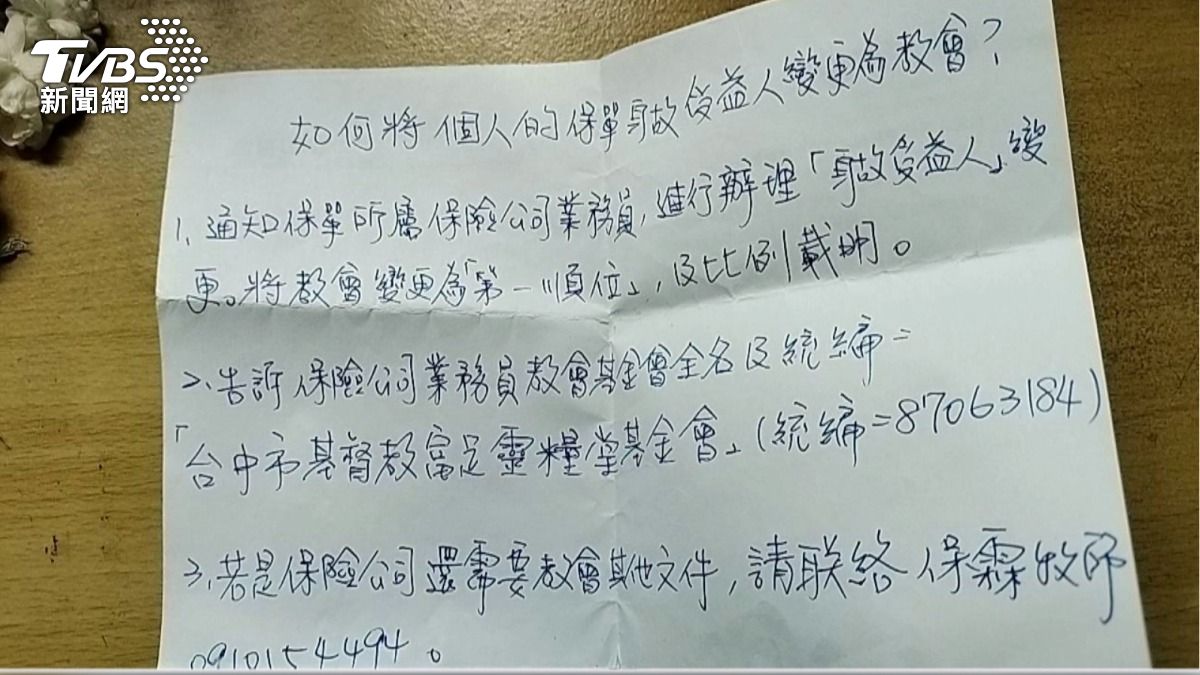 TVBS
新聞網
如何將個人的保單身故受益人變更為教會?
1、通知保單所屬保險公司業務員,進行辦理「身故受益人」變
更。將教會變更為「第一順位」,及比例載明。
2、告訴保險公司業務員教會基金會全名及統編=
「台中市基督教富足靈糧堂基金會」(統編=87063184)
3、若是保險公司還需要教會其他文件,請联絡保霖牧師
0910154494。